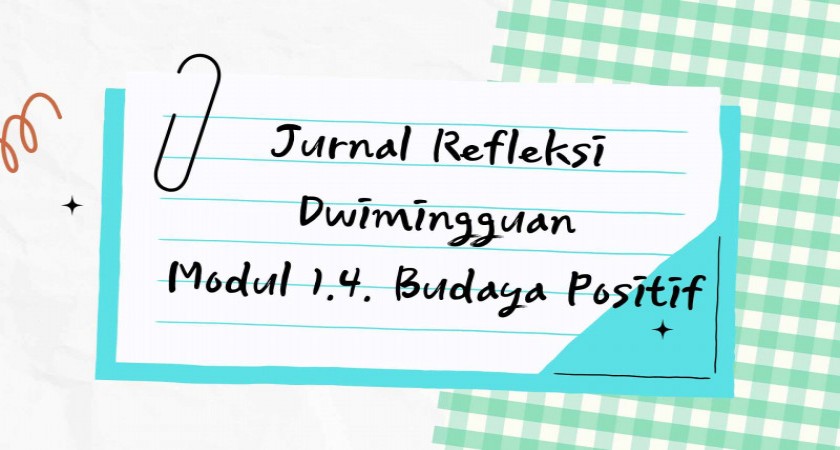 Jurnal Refleksi
Dwimingguan
Modul 1.4. Budaya Positif